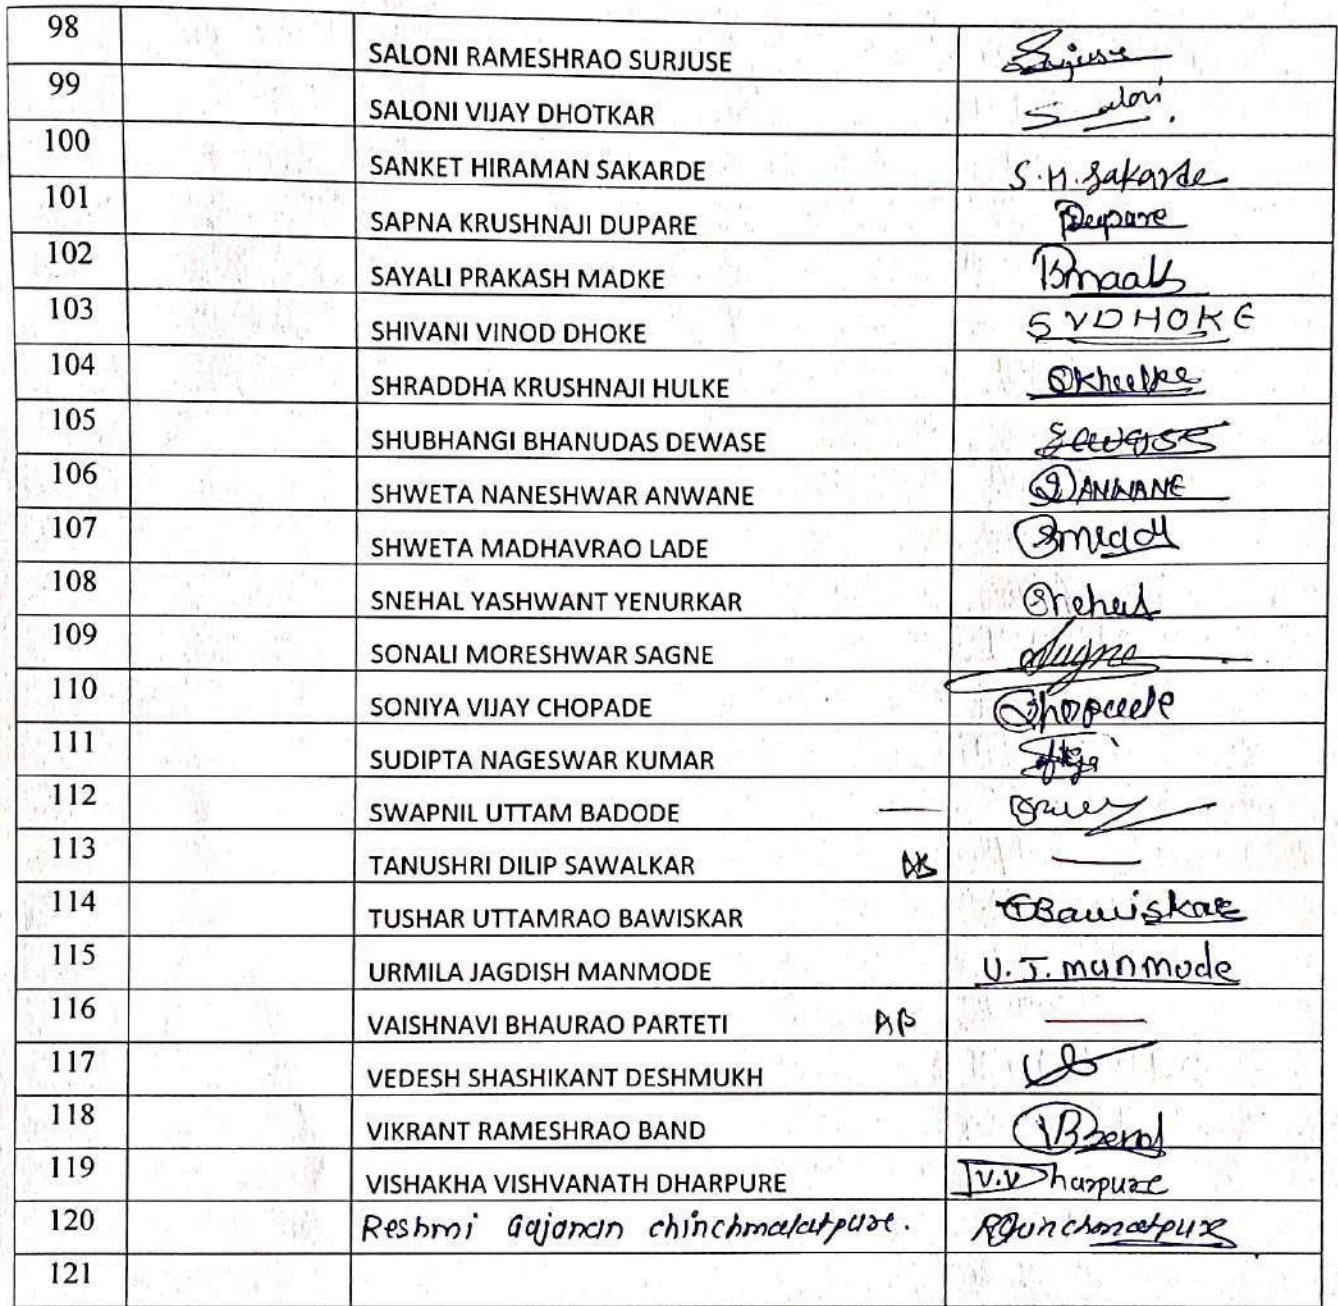 98 SALONI RAMESHRAO SURJUSE Surjuse
99 SALONI VIJAY DHOTKAR Saloni
100 SANKET HIRAMAN SAKARDE S.H. Sakarde
101 SAPNA KRUSHNAJI DUPARE Dupare
102 SAYALI PRAKASH MADKE
103 SHIVANI VINOD DHOKE SVDHOKE
104 SHRADDHA KRUSHNAJI HULKE
105 SHUBHANGI BHANUDAS DEWASE
106 SHWETA NANESHWAR ANWANE
107 SHWETA MADHAVRAO LADE
108 SNEHAL YASHWANT YENURKAR Snehal
109 SONALI MORESHWAR SAGNE
110 SONIYA VIJAY CHOPADE
111 SUDIPTA NAGESWAR KUMAR
112 SWAPNIL UTTAM BADODE —
113 TANUSHRI DILIP SAWALKAR AB —
114 TUSHAR UTTAMRAO BAWISKAR TBawiskar
115 URMILA JAGDISH MANMODE U.J. manmode
116 VAISHNAVI BHAURAO PARTETI AB —
117 VEDESH SHASHIKANT DESHMUKH
118 VIKRANT RAMESHRAO BAND
119 VISHAKHA VISHVANATH DHARPURE V.V Dharpure
120 Reshmi Gajanan chinchmalatpure.
121